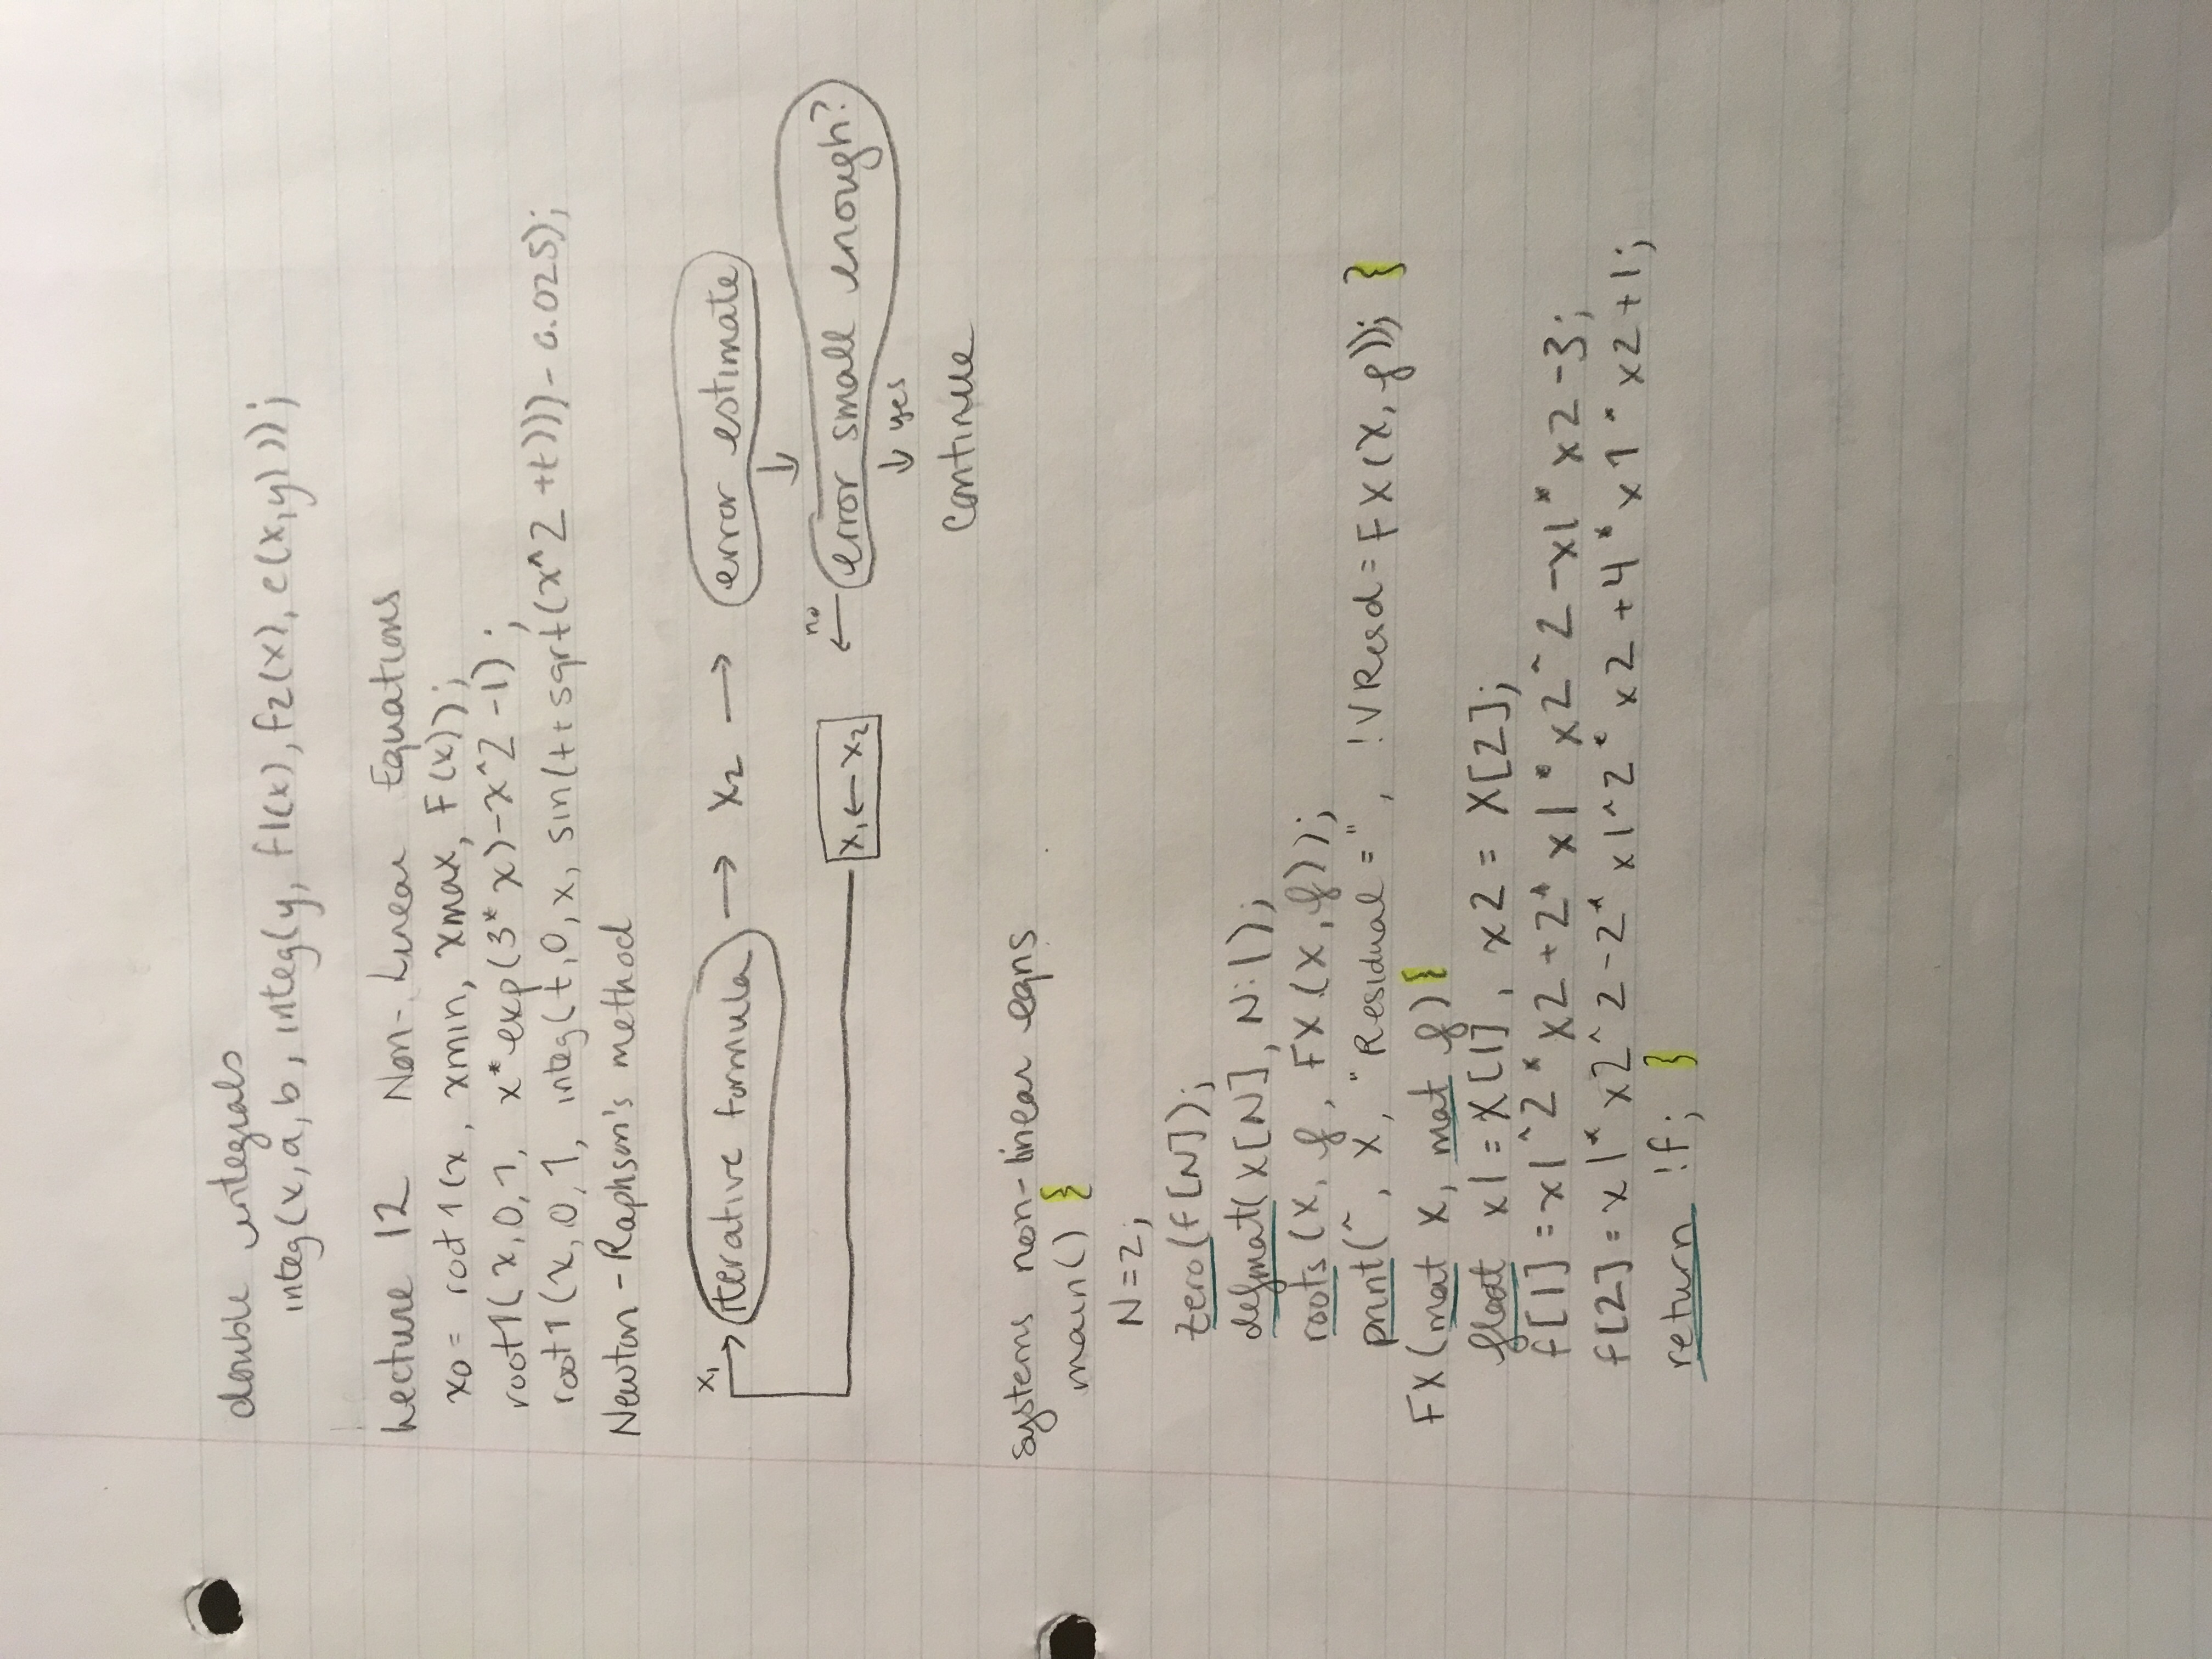 double integrals
integ(x,a,b, integ(y, f1(x), f2(x), e(x,y)));
Lecture 12 Non-Linear Equations
x0 = root1(x, xmin, xmax, F(x));
root1(x,0,1, x*exp(3*x)-x^2-1);
root1(x,0,1, integ(t,0,x, sin(t+sqrt(x^2+t)))-0.025);
Newton-Raphson's method
x1 → iterative formula → x2 → error estimate
↓
x1 ← x2 ← no error small enough?
↓ yes
Continue
systems non-linear eqns
main() {
N=2;
zero(f[N]);
defmat(x[N], N:1);
roots(x, f, FX(x,f));
print(^, x, "Residual=", !VResd=FX(x,f)); }
FX(mat x, mat f) {
float x1=x[1], x2=x[2];
f[1]=x1^2*x2+2*x1*x2^2-x1*x2-3;
f[2]=x1*x2^2-2*x1^2*x2+4*x1*x2+1;
return !f; }